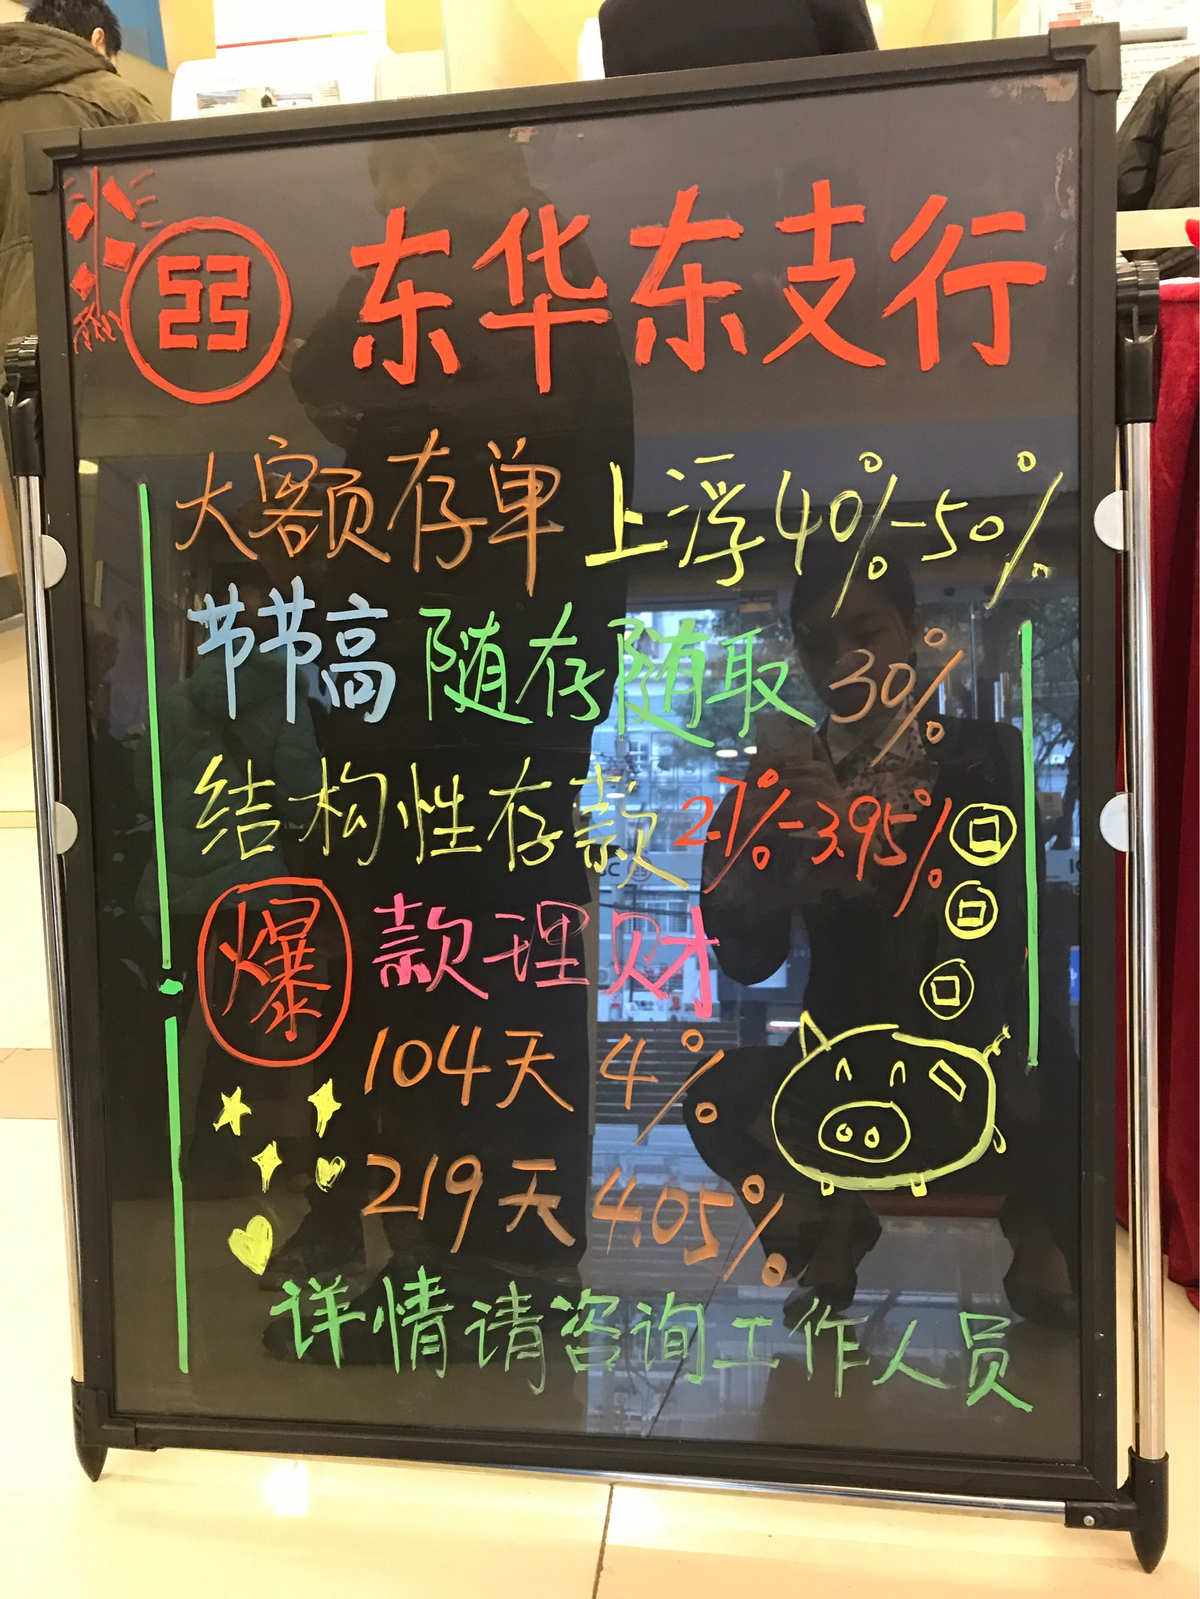 东华东支行
大额存单 上浮40%-50%
节节高 随存随取 30%
结构性存款 2.7%-3.95%
爆款理财
104天 4%
219天 4.05%
详情请咨询工作人员